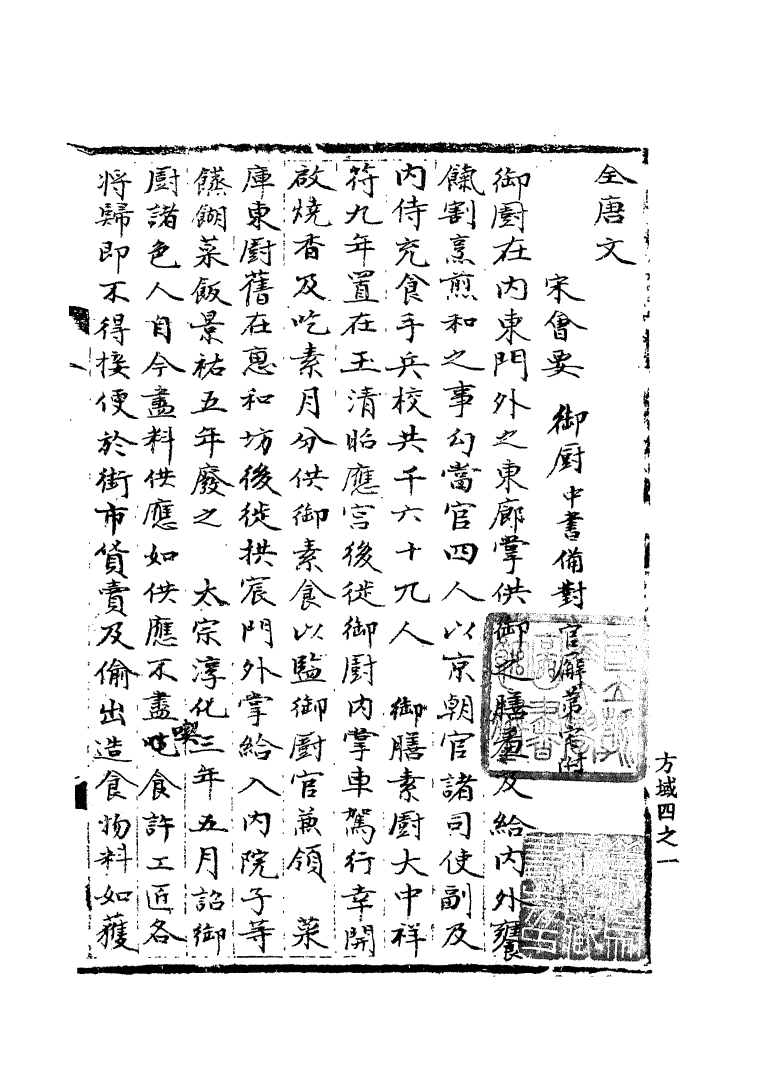 全唐文
宋會要 御厨中書備對 官廨第宅附
御厨在内東門外之東廊掌供御之膳羞及給内外饔
餼割烹煎和之事勾當官四人以京朝官諸司使副及
内侍充食手兵校共千六十九人 御膳素厨大中祥
符九年置在玉清昭應宫後徙御厨内掌車駕行幸開
啟燒香及吃素月分供御素食以監御厨官兼領 菜
庫東厨舊在惠和坊後徙拱宸門外掌給入内院子等
饙餬菜飯景祐五年廢之 太宗淳化三年五月詔御
厨諸色人自今盡料供應如供應不盡喫食許工匠各
將歸即不得接便於街市貨賣及偷出造食物料如獲
方域四之一